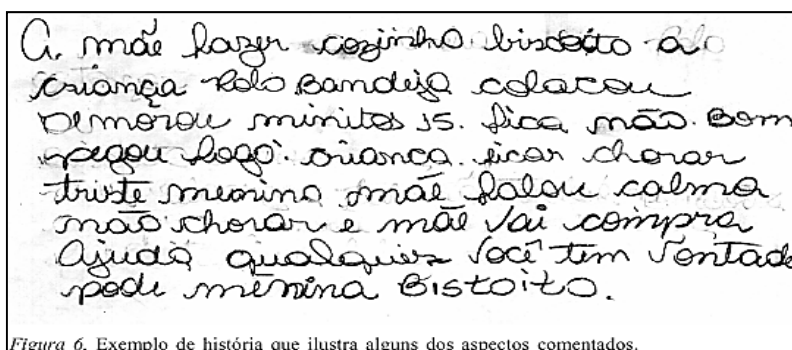 A mãe fazer cozinha biscoito a
criança bolo Bandeja colocou
Demorou minitos 15. fica não. Bom
pegou fogo. criança ficar chorar
triste menina mãe falou calma
não chorar e mãe vai compra
Ajuda qualquier você tem vontade
pode menina Bistoito.
Figura 6. Exemplo de história que ilustra alguns dos aspectos comentados.